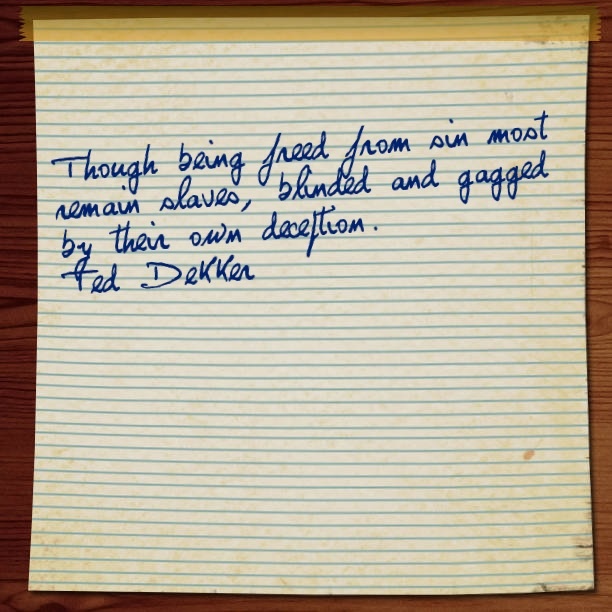 Though being freed from sin most
remain slaves, blinded and gagged
by their own deception.
Ted Dekker